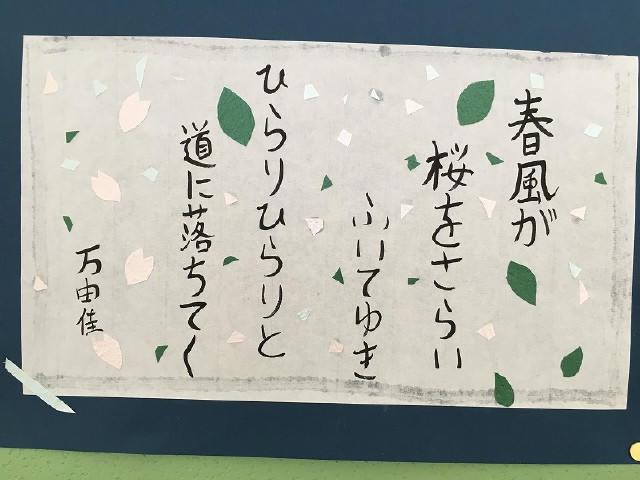 春風が
桜をさらい
ふいてゆき
ひらりひらりと
道に落ちてく
万由佳